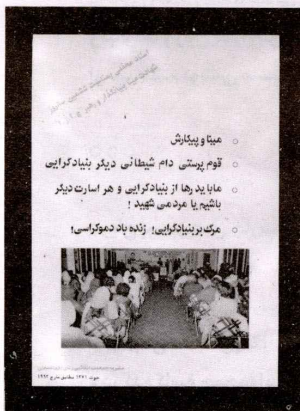 مینا و پیکارش
قوم پرستی دام شیطانی دیگر بنیادگرایی
ما باید رها از بنیادگرایی و هر اسارت دیگر
باشیم یا مردمی شهید !
مرگ بر بنیادگرایی! زنده باد دموکراسی!
حوت ۱۳۷۱ مطابق مارچ ۱۹۹۳